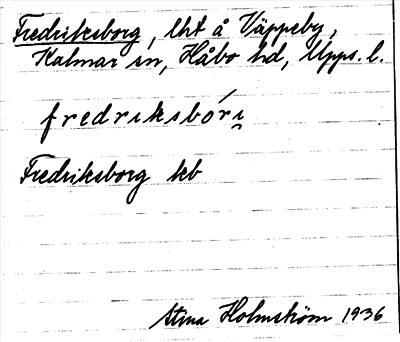 Fredriksborg, lht å Väppeby,
Kalmar sn, Håbo hd, Upps. l.
fredriksbóri̯
Fredriksborg kb
Stina Holmström 1936